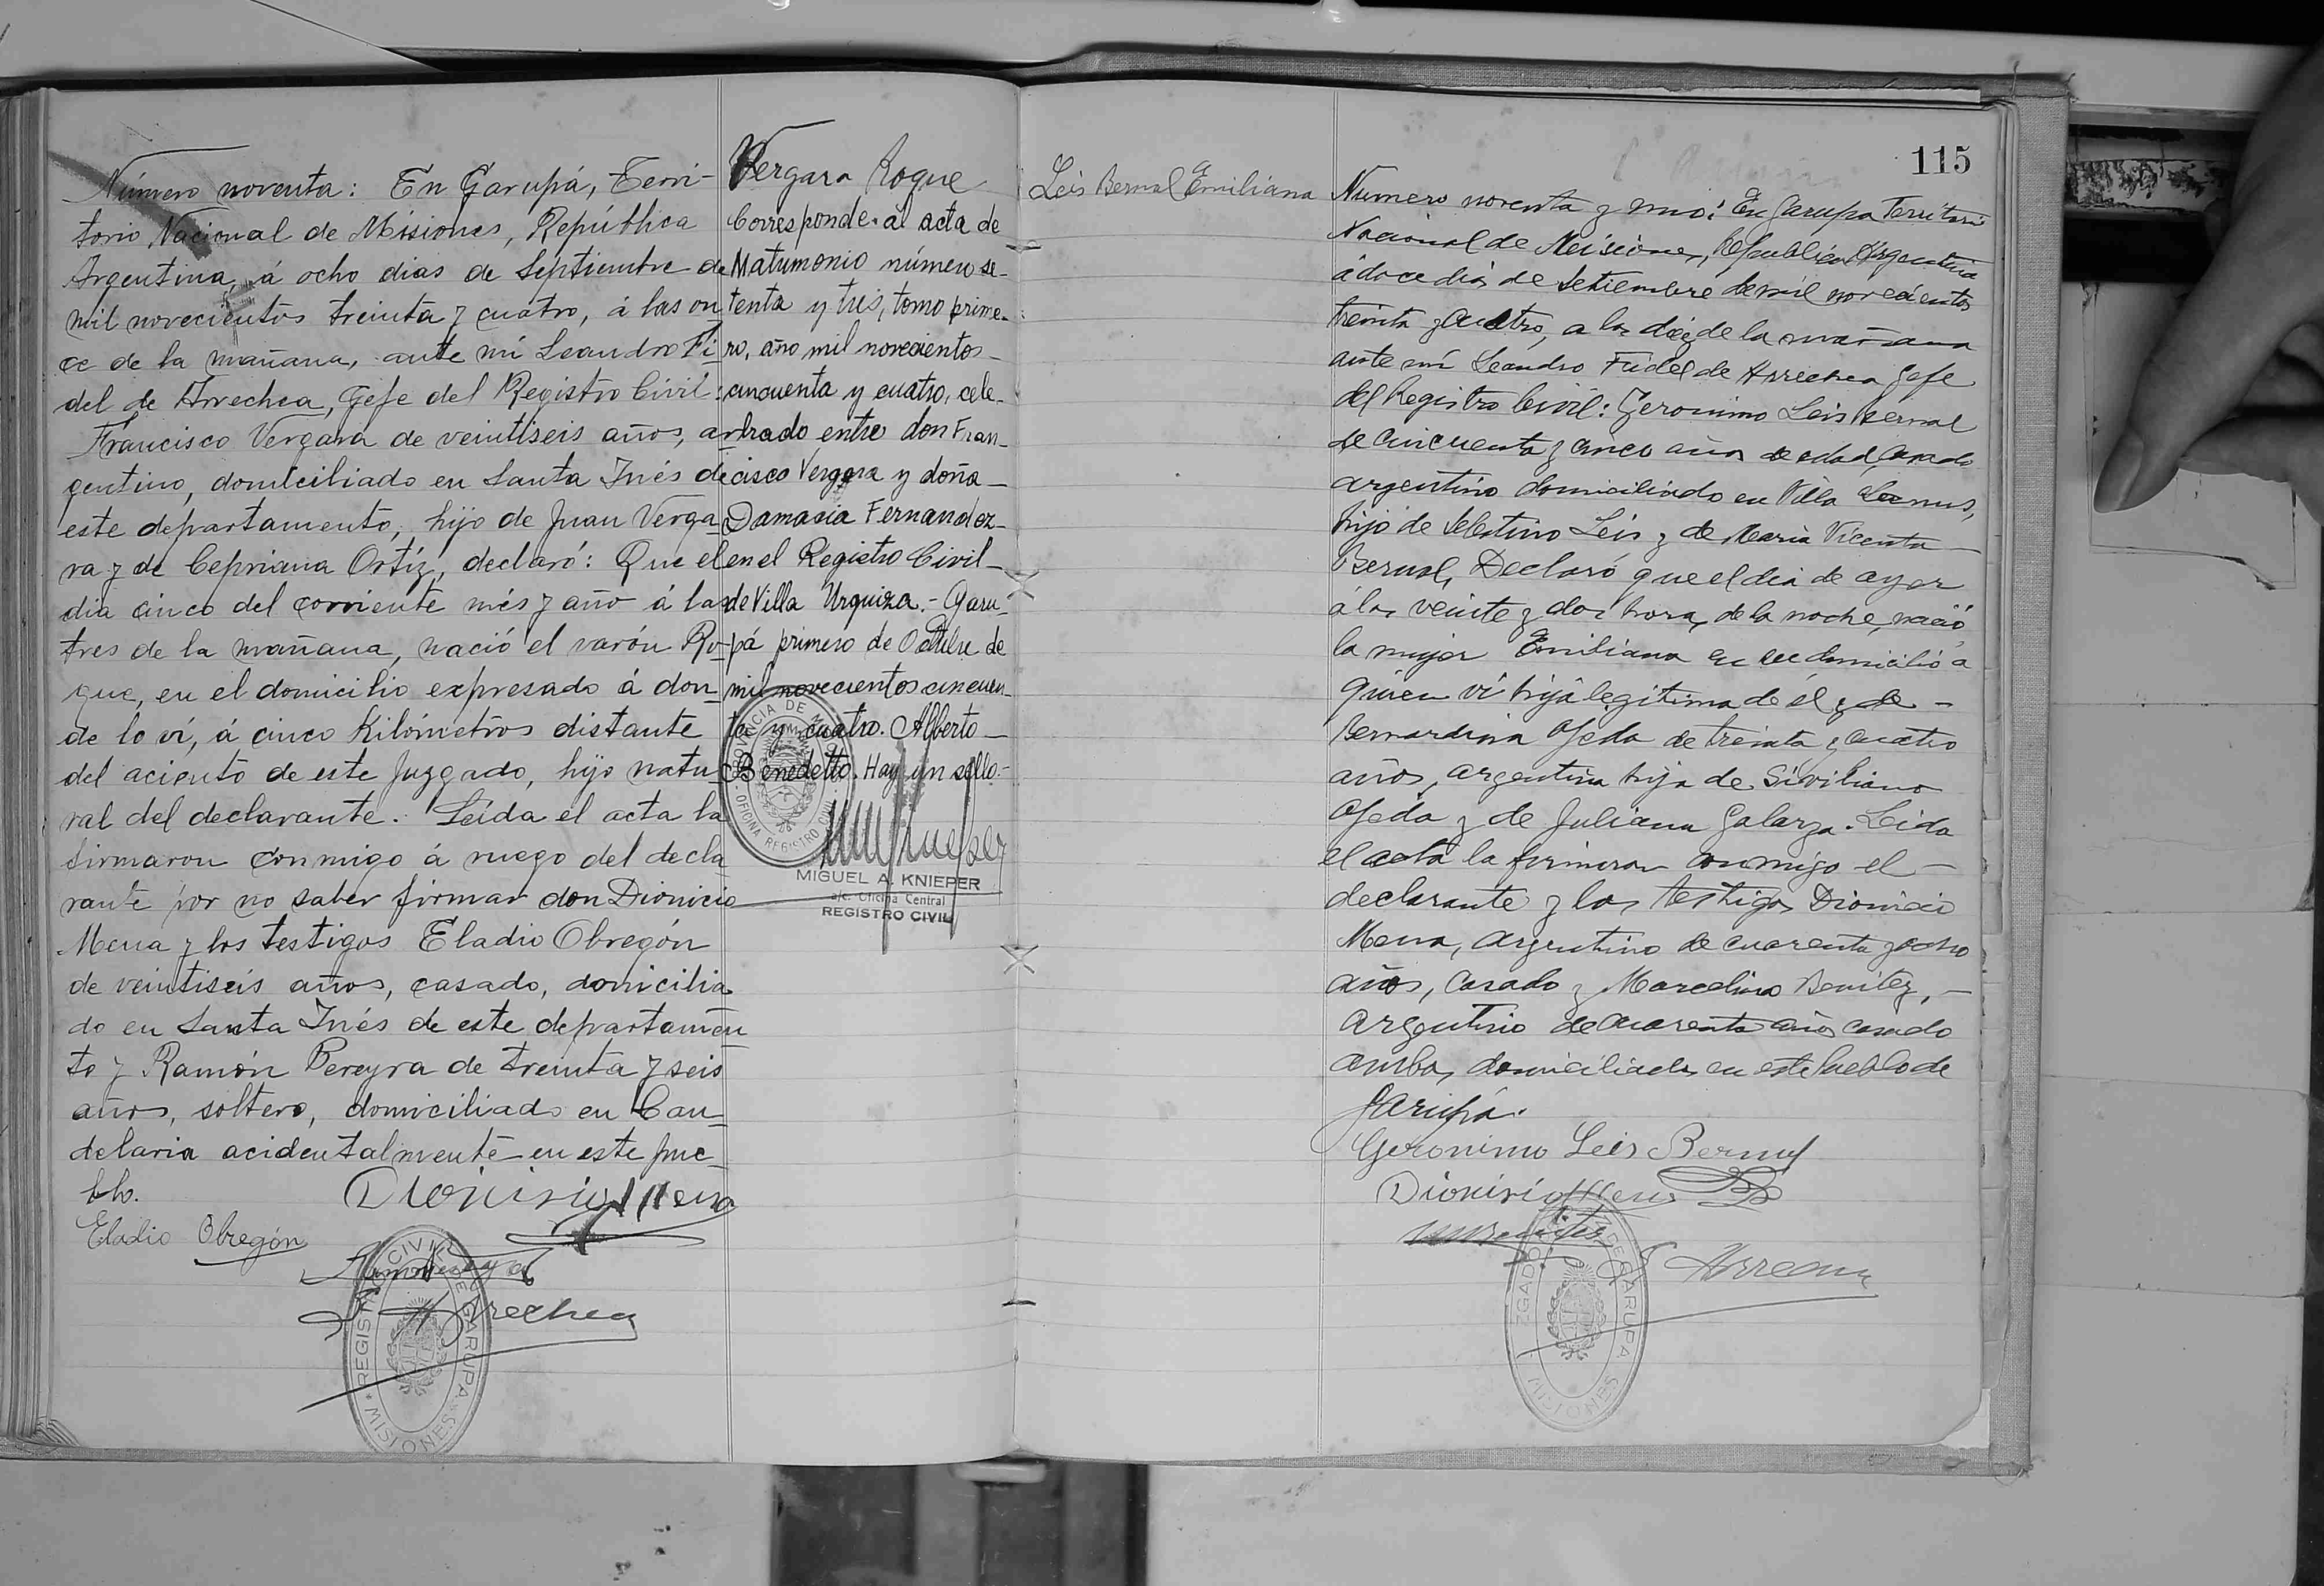 Número noventa: En Garupá, Terri-
torio Nacional de Misiones, República
Argentina, á ocho dias de Séptiembre de
mil novecientos treinta y cuatro, á las on
ce de la mañana, ante mí Leandro Fi
del de Arrechea, Gefe del Registro Civil:
Francisco Vergara de veintiseis años, ar
gentino, domiciliado en Santa Inés de
este departamento, hijo de Juan Verga
ra y de Cepriana Ortíz, declaró: Que el
dia cinco del corriente més y año á las
tres de la mañana, nació el varón Ro-
que, en el domicilio expresado á don
de lo ví, á cinco Kilómetros distante
del aciento de este Juzgado, hijo natu
ral del declarante. Leída el acta la
firmaron conmigo á ruego del decla
rante por no saber firmar don Dionicio
Mena y los testigos Eladio Obregón
de veintiseis años, casado, domicilia
do en Santa Inés de este departamen
to y Ramón Pereyra de treinta y seis
años, soltero, domiciliado en Can-
delaria acidentalmente en este pue-
blo.
Dionisio Mena
Eladio Obregón
Arrechea
REGISTRO CIVIL DE GARUPA
MISIONES
Vergara Roque
Corresponde al acta de
Matrimonio número se-
tenta y tres, tomo prime-
ro, año mil novecientos
cincuenta y cuatro, cele-
brado entre don Fran-
cisco Vergara y doña
Damasia Fernandez
en el Registro Civil
de Villa Urquiza.- Garu-
pá primero de Octubre de
mil novecientos cincuen-
ta y cuatro. Alberto
Benedetto. Hay un sello.-
PROVINCIA DE
OFICINA REGISTRO CIVIL
MIGUEL A. KNIEPER
a/c. Oficina Central
REGISTRO CIVIL
115
Leis Bernal Emiliana
Número noventa y uno: En Garupa Territori
Nacional de Misiones, Republica Argentina
á doce dias de Setiembre de mil novecientos
treinta y cuatro, a las diez de la mañana
ante mí Leandro Fidel de Arrechea Gefe
del Registro Civil: Geronimo Leis Bernal
de cuicuenta y cinco años de edad, casado
argentino domiciliado en Villa Lanus,
hijo de Selestino Leis y de Maria Vicenta
Bernal, Declaró que el dia de ayer
á las veinte y dos hora, de la noche, nació
la mujer Emiliana en su domicilio a
quien ví hija legitima de él y de
Bernardina Ojeda de treinta y cuatro
años, argentina hija de Siviliano
Ojeda y de Juliana Galarza. Leida
el acta la firmaron conmigo el
declarante y los testigos Dionicio
Mena, argentino de cuarenta y ocho
años, casado y Marcelino Benitez,
argentino de cuarenta años casado
ambos domiciliados en este Pueblo de
Garupá.
Geronimo Leis Bernal
Dionisio Mena
Arrechea
JUZGADO DE GARUPA
MISIONES